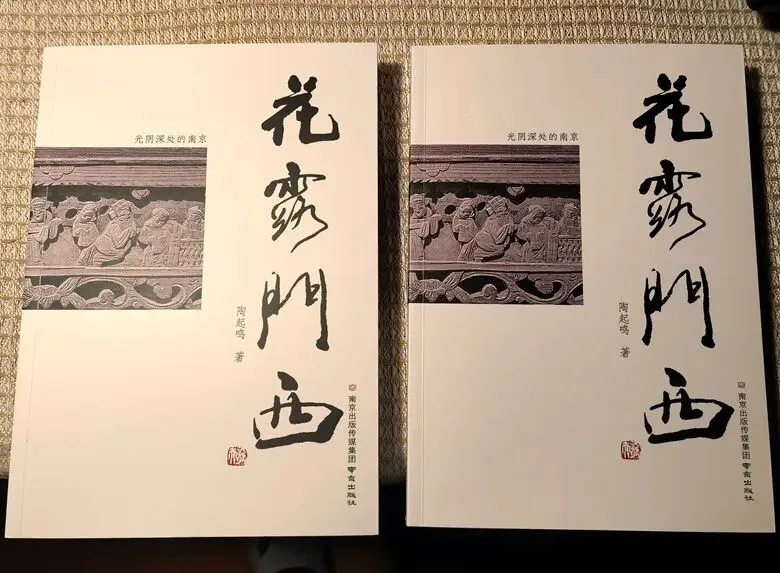 花露門西
光阴深处的南京
陶起鸣 著
南京出版传媒集团
南京出版社
花露門西
光阴深处的南京
陶起鸣 著
南京出版传媒集团
南京出版社